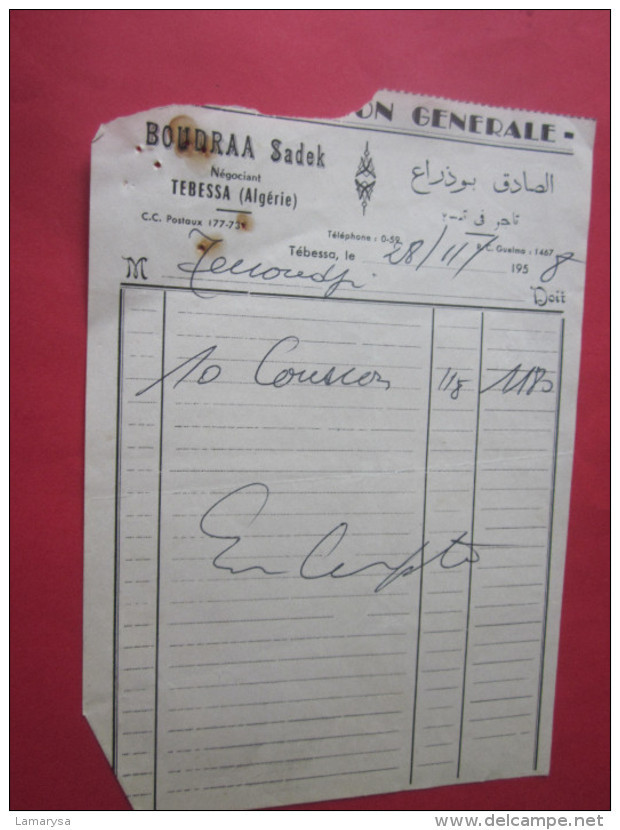 ON GENERALE -
BOUDRAA Sadek
الصادق بوذراع
Négociant
TEBESSA (Algérie)
تاجر في
C.C. Postaux 177-73
Téléphone : 0-59
R.C. Guelma : 1467
Tébessa, le 28/11/ 1958
M
Doit
10 Couscous 118 1180
En Compte
Lamarysa
www.delcampe.net